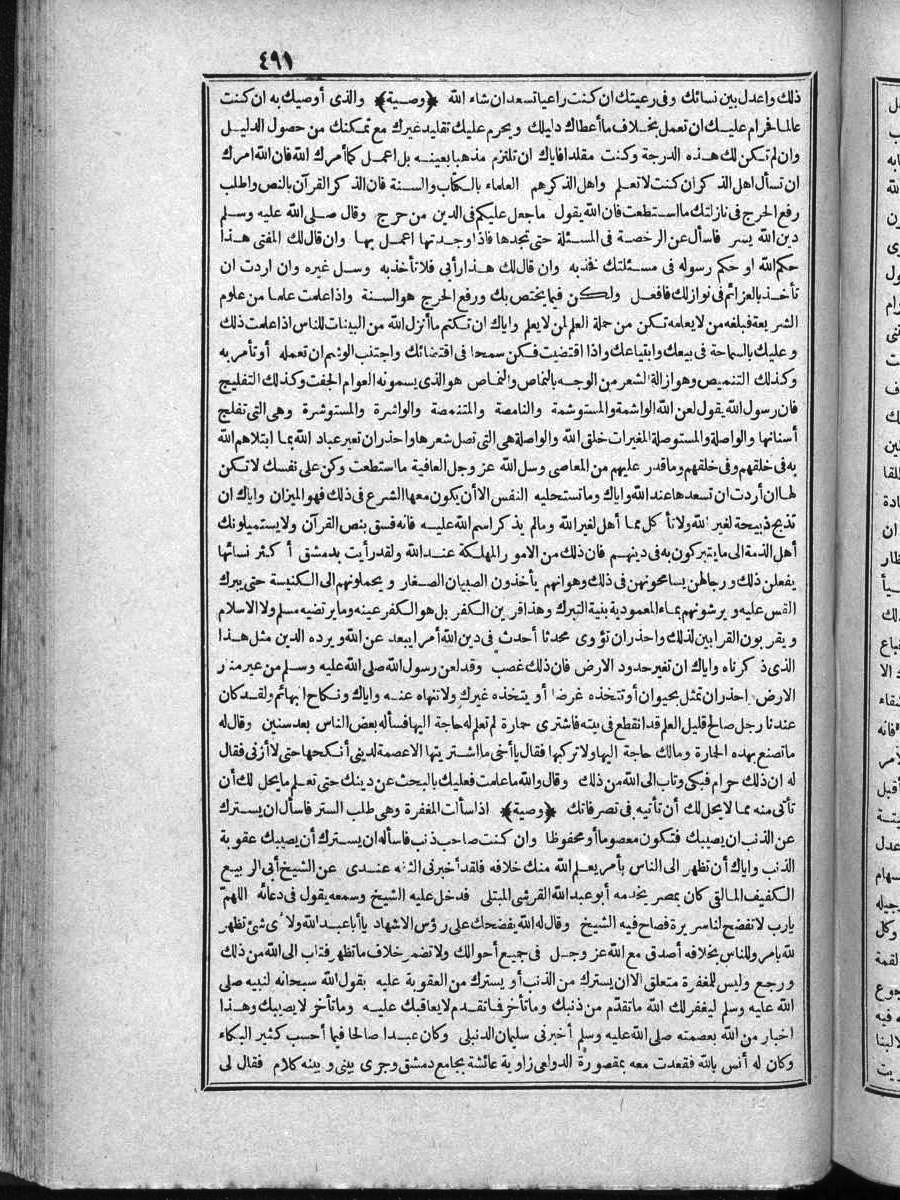 ٤٩١
ذلك واعدل بين نسائك وفى رعيتك ان كنت راعيا تسعد ان شاء الله ﴿وصية﴾ والذى أوصيك به ان كنت
عالما فحرام عليك ان تعمل بخلاف ما أعطاك دليلك ويحرم عليك تقليد غيرك مع تمكنك من حصول الدليل
وان لم تكن لك هذه الدرجة وكنت مقلدا فاياك ان تلتزم مذهبا بعينه بل اعمل كما أمرك الله فان الله أمرك
ان تسأل اهل الذكر ان كنت لا تعلم واهل الذكر هم العلماء بالكتاب والسنة فان الذكر القرآن بالنص واطلب
رفع الحرج فى نازلتك ما استطعت فان الله يقول ما جعل عليكم فى الدين من حرج وقال صلى الله عليه وسلم
دين الله يسر فاسأل عن الرخصة فى المسئلة حتى تجدها فاذا وجدتها اعمل بها وان قال لك المفتى هذا
حكم الله او حكم رسوله فى مسئلتك فخذ به وان قال لك هذا رأيى فلا تأخذ به وسل غيره وان اردت ان
تأخذ بالعزائم فى نوازلك فافعل ولكن فيما يختص بك ورفع الحرج هو السنة واذا علمت علما من علوم
الشريعة فبلغه من لا يعلمه تكن من حملة العلم لمن لا يعلم واياك ان تكتم ما أنزل الله من البينات للناس اذا علمت ذلك
وعليك بالسماحة فى بيعك وابتياعك واذا اقتضيت فكن سمحا فى اقتضائك واجتنب الوشم ان تعمله أو تأمر به
وكذلك التنميص وهو ازالة الشعر من الوجه بالنماص والنماص هو الذى يسمونه العوام الجفت وكذلك التفليج
فان رسول الله يقول لعن الله الواشمة والمستوشمة والنامصة والمتنمصة والواشرة والمستوشرة وهى التى تفلج
أسنانها والواصلة والمستوصلة المغيرات خلق الله والواصلة هى التى تصل شعرها واحذر ان تعير عباد الله بما ابتلاهم الله
به فى خلقهم وفى خلقهم وما قدر عليهم من المعاصى وسل الله عز وجل العافية ما استطعت وكن على نفسك لا تكن
لها ان أردت ان تسعدها عند الله واياك وما تستحليه النفس الا أن يكون معها الشرع فى ذلك فهو الميزان واياك ان
تذبح ذبيحة لغير الله ولا تأكل مما أهل لغير الله ومالم يذكر اسم الله عليه فانه فسق بنص القرآن ولا يستميلونك
أهل الذمة الى ما يتبركون به فى دينهم فان ذلك من الامور المهلكة عند الله ولقد رأيت بدمشق أكثر نسائها
يفعلن ذلك ورجالهن يسامحونهن فى ذلك وهو انهم يأخذون الصبيان الصغار ويحملونهم الى الكنيسة حتى يبرك
القس عليه ويرشونهم بماء المعمودية بنية التبرك وهذا قرين الكفر بل هو الكفر عينه وما يرتضيه مسلم ولا الاسلام
ويقربون القرابين لذلك واحذر ان تؤوى محدثا أحدث فى دين الله أمرا يبعد عن الله ويرده الدين مثل هذا
الذى ذكرناه واياك ان تغير حدود الارض فان ذلك غصب وقد لعن رسول الله صلى الله عليه وسلم من غير منار
الارض احذر ان تمثل بحيوان أو تتخذه غرضا أو يتخذه غيرك ولا تنهاه عنه واياك ونكاح البهائم ولقد كان
عندنا رجل صالح قليل العلم قد انقطع فى بيته فاشترى حمارة لم تعلم له حاجة اليها فسأله بعض الناس بعد سنين وقال له
ما تصنع بهذه الحمارة ومالك حاجة اليها ولا تركبها فقال يا أخى ما اشتريتها الا عصمة لدينى أنكحها حتى لا أزنى فقال
له ان ذلك حرام فبكى وتاب الى الله من ذلك وقال والله ما علمت فعليك بالبحث عن دينك حتى تعلم ما يحل لك أن
تأتى منه مما لا يحل لك أن تأتيه فى تصرفاتك ﴿وصية﴾ اذا سألت المغفرة وهى طلب الستر فاسأل ان يسترك
عن الذنب ان يصيبك فتكون معصوما أو محفوظا وان كنت صاحب ذنب فاسأله ان يسترك أن يصيبك عقوبة
الذنب واياك أن تظهر الى الناس بأمر يعلم الله منك خلافه فلقد أخبرنى الثقة عندى عن الشيخ أبى الربيع
الكفيف المالقى كان بمصر يخدمه أبو عبد الله القرشى المبتلى فدخل عليه الشيخ وسمعه يقول فى دعائه اللهم
يارب لا تفضح لنا سريرة فصاح فيه الشيخ وقال له الله يفضحك على رؤس الاشهاد يا أبا عبد الله ولأى شئ تظهر
لله بامر وللناس بخلافه أصدق مع الله عز وجل فى جميع أحوالك ولا تضمر خلاف ما تظهر فتاب الى الله من ذلك
ورجع وليس للمغفرة متعلق الا ان يسترك من الذنب أو يسترك من العقوبة عليه يقول الله سبحانه لنبيه صلى
الله عليه وسلم ليغفر لك الله ما تقدّم من ذنبك وما تأخر فما تقدم لا يعاقبك عليه وما تأخر لا يصيبك وهذا
اخبار من الله بعصمته صلى الله عليه وسلم أخبرنى سليمان الدنبلى وكان عبدا صالحا فيما أحسب كثير البكاء
وكان له أنس بالله فقعدت معه بمقصورة الدولعى زاوية عائشة بجامع دمشق وجرى بينى وبينه كلام فقال لى